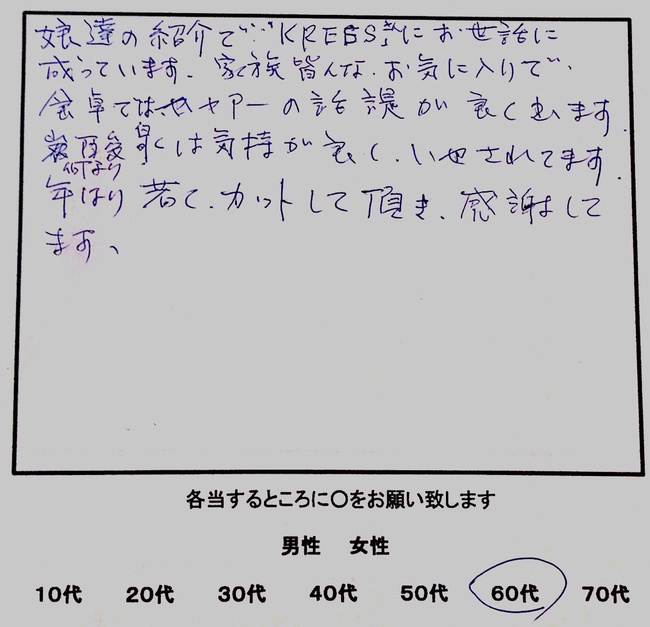 娘達の紹介で…"KREBSさん"にお世話に
成っています。家族皆んな、お気に入りで、
食卓ではヤアーの話題が良く出ます。
は気持が良く、いやされてます。
何より
年より若く、カットして頂き、感謝して
ます、
各当するところに〇をお願い致します
男性 女性
10代 20代 30代 40代 50代 60代 70代